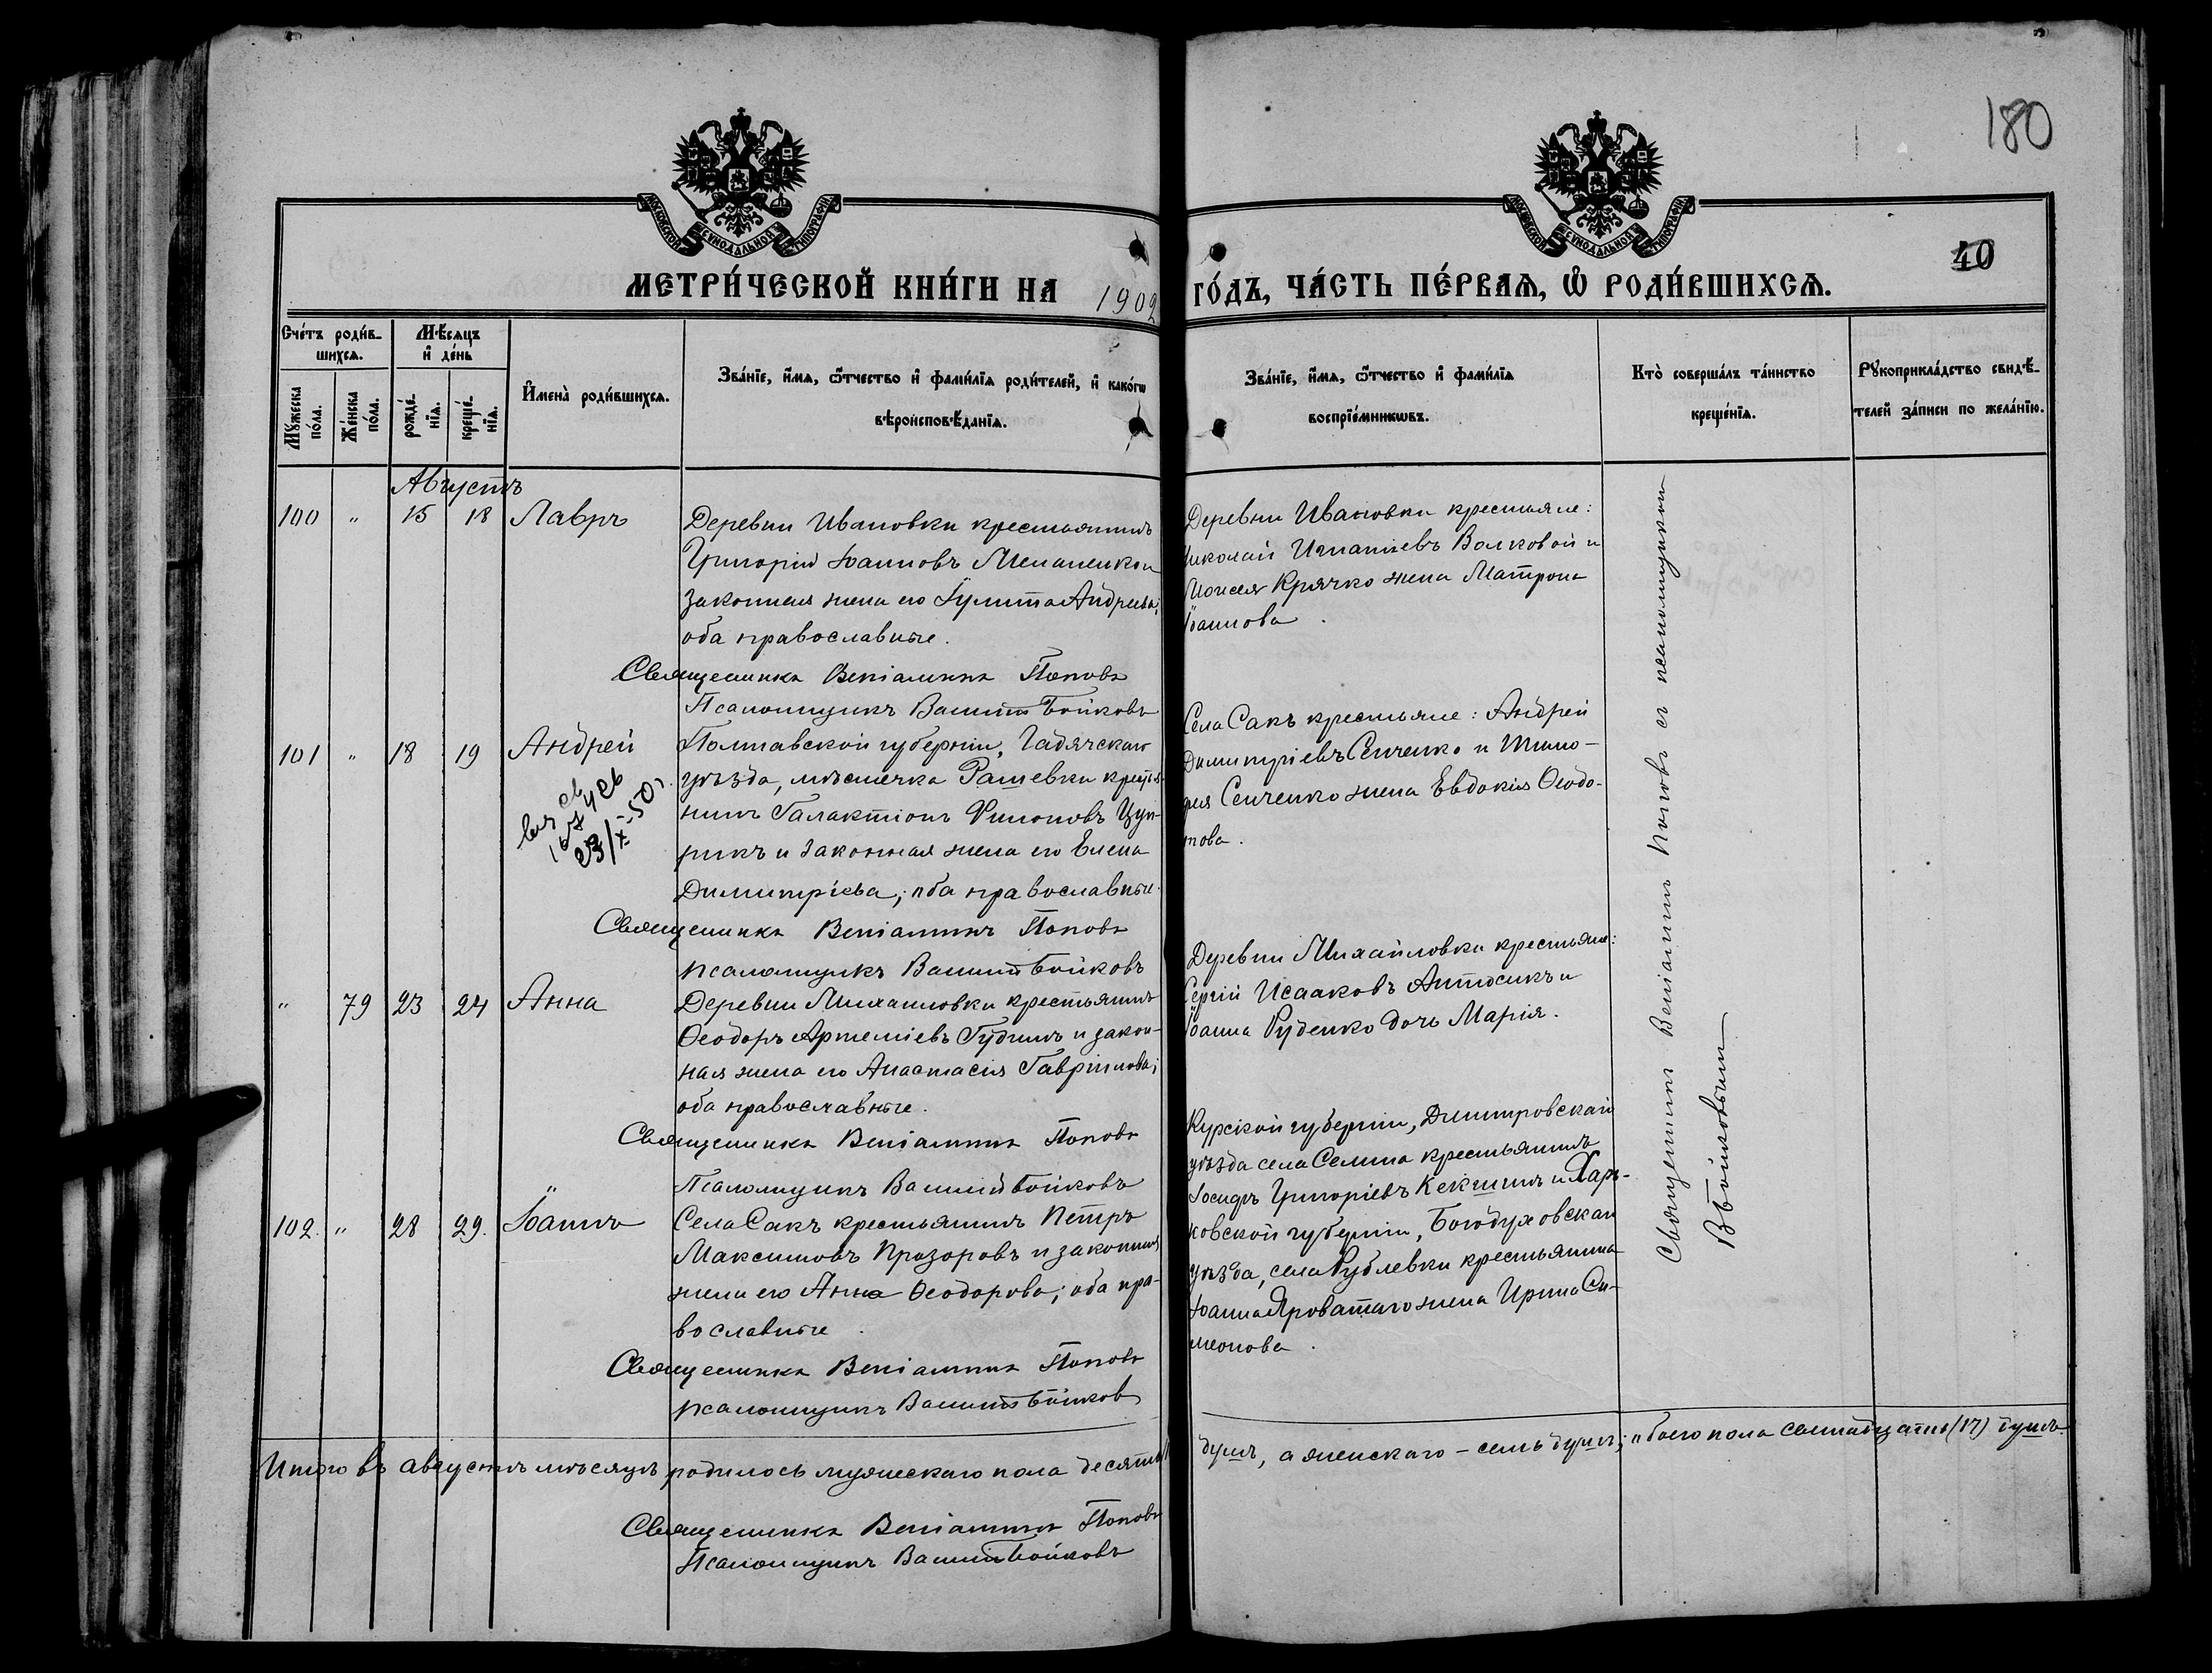 180
МОСКОВСКОЙ СУНОДАЛЬНОЙ ТИПОГРАФІИ
МОСКОВСКОЙ СУНОДАЛЬНОЙ ТИПОГРАФІИ
40
МЕТРИ́ЧЕСКОЙ КНИ́ГИ НА 1902 ГО́ДЪ, ЧА́СТЬ ПЕ́РВАѦ, Ѡ҆ РОДИ́ВШИХСѦ.
Сче́тъ роди́в-
шихсѧ.
Мꙋ́жеска по́ла.
Же́нска по́ла.
Мѣ́сѧцъ
и҆ де́нь
рожде́-
нїѧ.
креще́-
нїѧ.
И҆мена̀ роди́вшихсѧ.
Зва́нїе, и҆́мѧ, ѻ҆́тчество и҆ фами́лїѧ роди́телей, и҆ како́гѡ
вѣроисповѣ́данїѧ.
Зва́нїе, и҆́мѧ, ѻ҆́тчество и҆ фами́лїѧ
воспрїе́мникѡвъ.
Кто̀ соверша́лъ та́инство
креще́нїѧ.
Рꙋкоприкла́дство свидѣ́-
телей за́писи по жела́нїю.
Августъ
100 " 15 18 Лавръ
Деревни Ивановки крестьянинъ
Григорій Іоанновъ и
законная жена его Іулитта Андреева;
оба православные.
Священникъ Веніаминъ Поповъ
Псаломщикъ Василій Бойковъ
Деревни Ивановки крестьяне:
Николай Игнатіевъ Волковой и
Моисея Крячко жена Матрона
Іоаннова.
101 " 18 19 Андрей
23/X-50г.
Полтавской губерніи, Гадячскаго
уѣзда, мѣстечка Рашевки крестья-
нинъ Галактіонъ Филоповъ Цун-
рикъ и законная жена его Елена
Димитріева; оба православные.
Священникъ Веніаминъ Поповъ
псаломщикъ Василій Бойковъ
Села Сакъ крестьяне: Андрей
Димитріевъ Сенченко и Тимо-
фея Сенченко жена Евдокія Ѳеодо-
това.
" 79 23 24 Анна
Деревни Михайловки крестьянинъ
Ѳеодоръ Артеміевъ Гудимъ и закон-
ная жена его Анастасія Гавріилова;
оба православные.
Священникъ Веніаминъ Поповъ
Псаломщикъ Василій Бойковъ
Деревни Михайловки крестьяне:
Сергій Исааковъ Антосикъ и
Іоанна Руденко дочь Марія.
102. " 28 29. Іоаннъ
Села Сакъ крестьянинъ Петръ
Максимовъ Прозоровъ и законная
жена его Анна Ѳеодорова; оба пра-
вославные.
Священникъ Веніаминъ Поповъ
псаломщикъ Василій Бойковъ
Курской губерніи, Димитровскаго
уѣзда села Селина крестьянинъ
Іосифъ Григоріевъ Кекшинъ и Харь-
ковской губерніи, Богодуховскаго
уѣзда, села Рублевки крестьянина
Іоанна Яроватаго жена Ирина Си-
меонова.
Священникъ Веніаминъ Поповъ съ псаломщикомъ
В. Бойковымъ
Итого въ августѣ мѣсяцѣ родилось мужескаго пола десять душъ, а женскаго – семь душъ; обоего пола семнадцать (17) душъ.
Священникъ Веніаминъ Поповъ
Псаломщикъ Василій Бойковъ